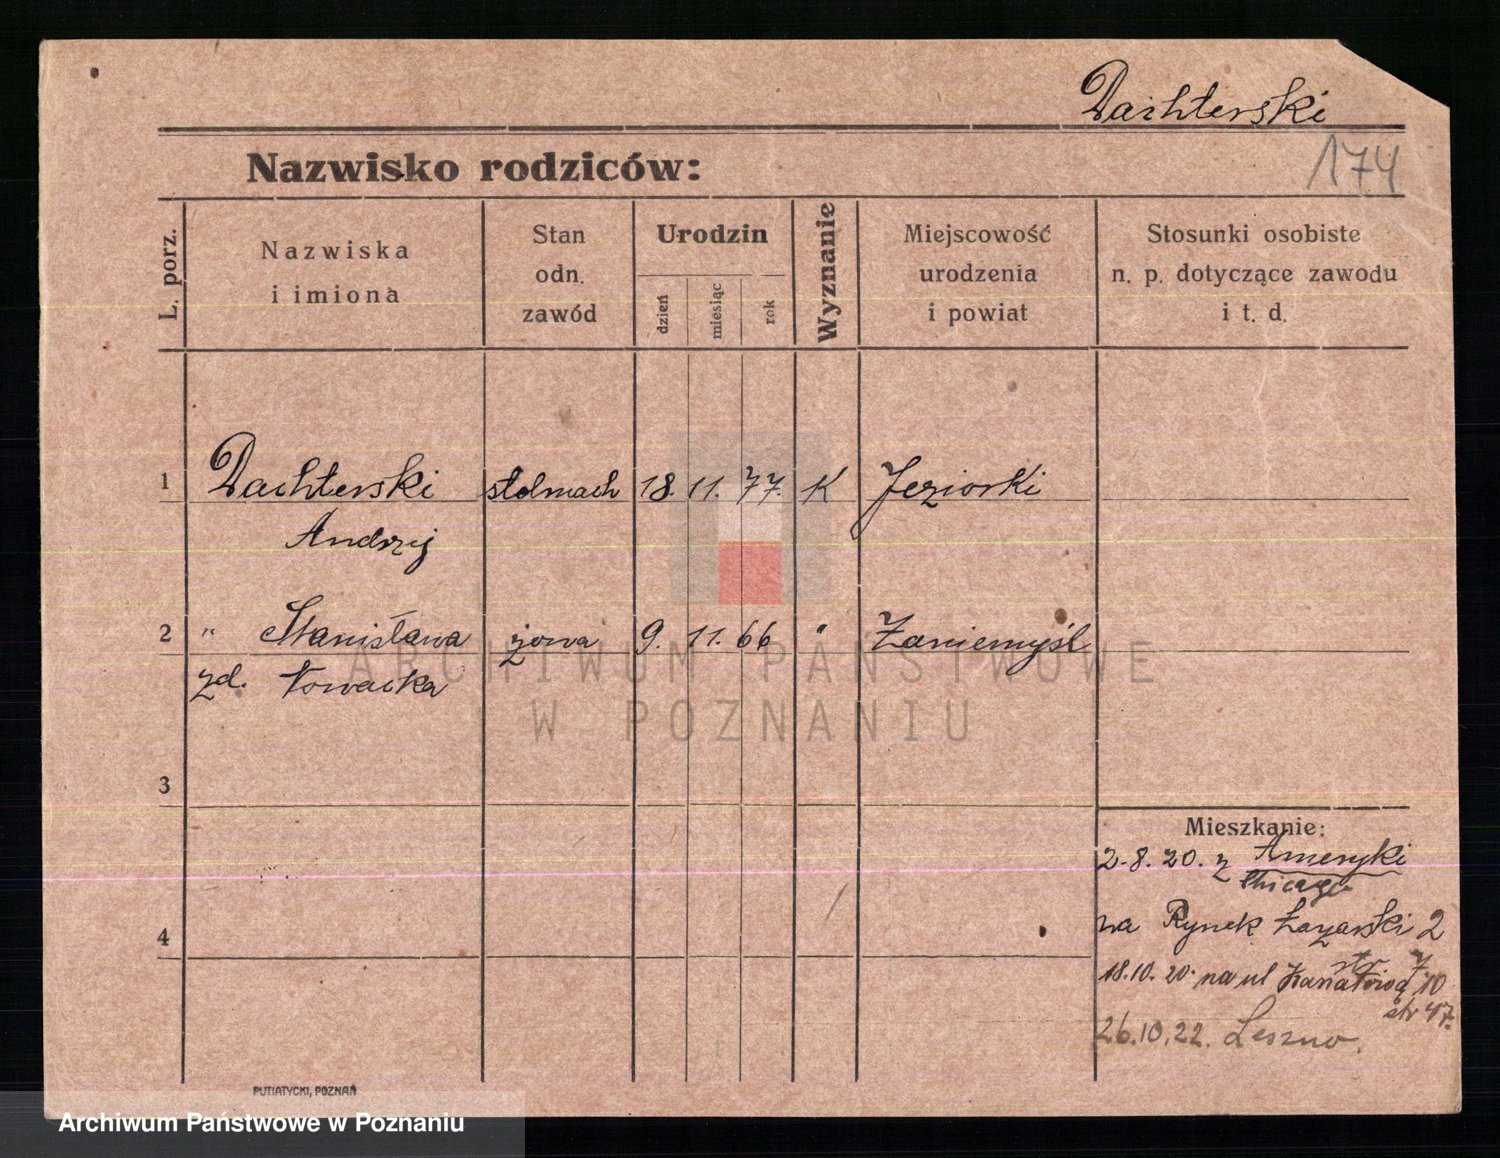 Dachterski
174
Nazwisko rodziców:
L. porz.
Nazwiska
i imiona
Stan
odn.
zawód
Urodzin
dzień
miesiąc
rok
Wyznanie
Miejscowość
urodzenia
i powiat
Stosunki osobiste
n. p. dotyczące zawodu
i t. d.
1 Dachterski stelmach 18. 11. 77. K Jeziorki
Andrzej
2 " Stanisława żona 9. 11. 66 " Zaniemyśl
zd. Nowacka
ARCHIWUM PAŃSTWOWE
W POZNANIU
3
Mieszkanie:
2-8.20. z Ameryki
Chicago
na Rynek Łazarski 2
4
str 7
18.10.20. na ul Kanałową 10
str 47.
26.10.22. Leszno.
PUTIATYCKI, POZNAŃ
Archiwum Państwowe w Poznaniu